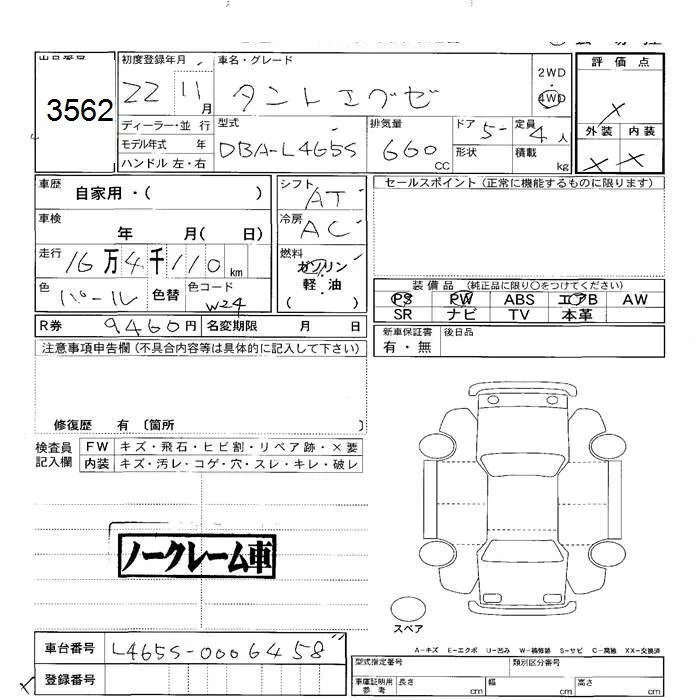 出品番号
3562
初度登録年月
22 11月
ディーラー・並 行
モデル年式 年
ハンドル 左・右
車名・グレード
タントエグゼ
2WD
4WD
型式
DBA-L465S
排気量
660 CC
ドア 5
形状
定員 4 人
積載 kg
評 価 点
×
外装 内装
× ×
車歴
自家用・( )
車検
年 月( 日)
走行
16万4千110 km
色
パール
色替
色コード
W24
シフト
AT
冷房
AC
燃料
ガソリン
軽・油
( )
セールスポイント (正常に機能するものに限ります)
装 備 品 (純正品に限り○をつけてください)
PS PW ABS エアB AW
SR ナビ TV 本革
R券 9460円 名変期限 月 日
新車保証書
有・無
後日品
注意事項申告欄 (不具合内容等は具体的に記入して下さい)
修復歴 有 〔箇所 〕
検査員
記入欄
FW キズ・飛石・ヒビ割・リペア跡・×要
内装 キズ・汚レ・コゲ・穴・スレ・キレ・破レ
ノークレーム車
スペア
車台番号 L465S-0006458
登録番号
A-キズ E-エクボ U-凹み W-補修跡 S-サビ C-腐蝕 XX-交換済
型式指定番号 類別区分番号
車庫証明用
参考
長さ cm 幅 cm 高さ cm